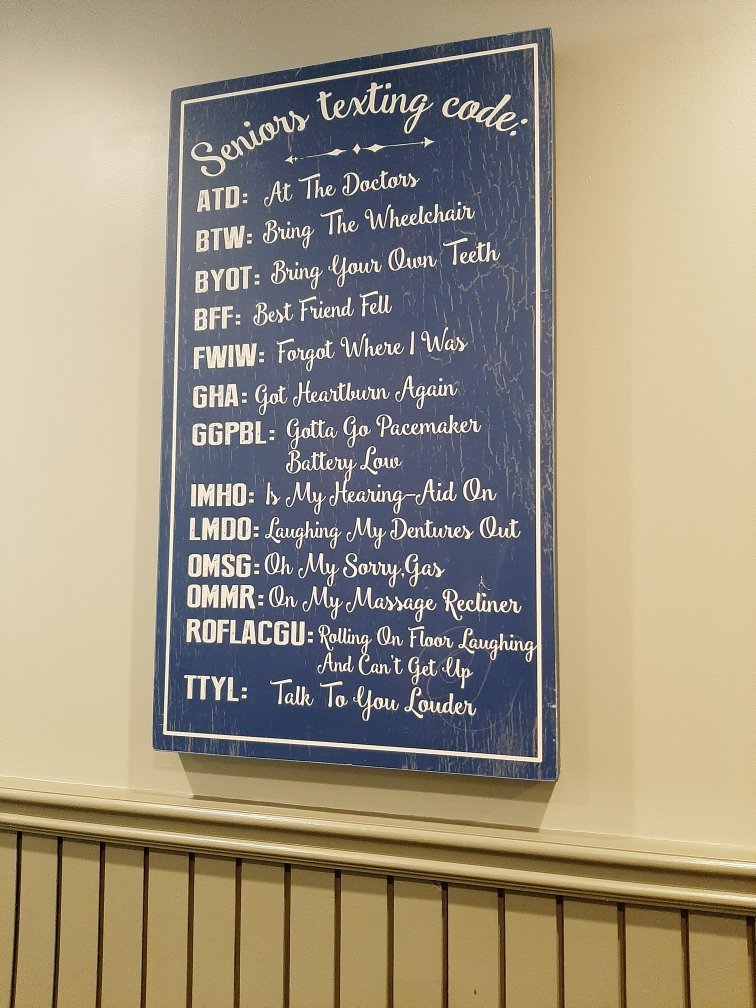 Seniors texting code:
ATD: At The Doctors
BTW: Bring The Wheelchair
BYOT: Bring Your Own Teeth
BFF: Best Friend Fell
FWIW: Forgot Where I Was
GHA: Got Heartburn Again
GGPBL: Gotta Go Pacemaker
Battery Low
IMHO: Is My Hearing-Aid On
LMDO: Laughing My Dentures Out
OMSG: Oh My Sorry, Gas
OMMR: On My Massage Recliner
ROFLACGU: Rolling On Floor Laughing
And Can't Get Up
TTYL: Talk To You Louder